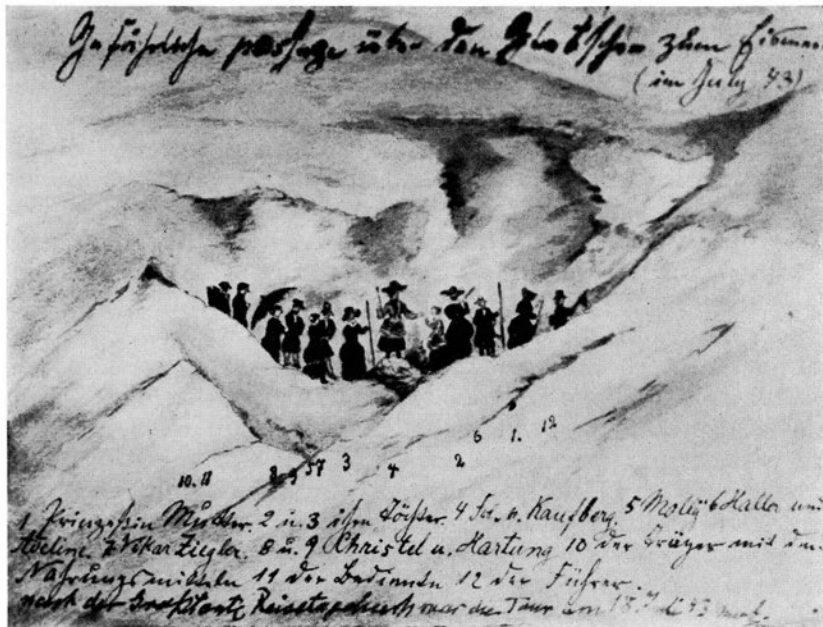 Gefährliche passage über den Gletscher zum Eismeer
(im July 43)
10. 11 8 9 5 7 3 4 2 6 1. 12
1 Prinzessin Mutter. 2 u. 3 ihre Töchter. 4 v. Kaufberg. 5 Molly 6 Haller und
7 Vikar Ziegler. 8 u. 9 Christel u. Hartung 10 der Träger mit den
Nahrungsmitteln 11 der Bediente 12 der Führer.
nach der Reisetagebuch war die Tour am 18. Juli 43